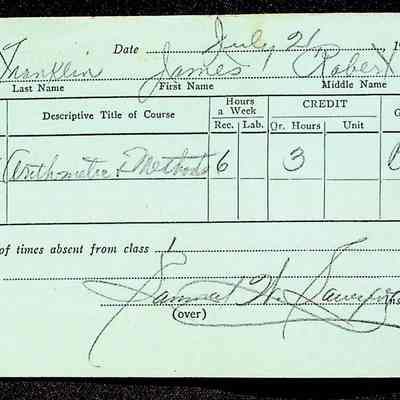 Date July 21, 1
Franklin James Robert
Last Name First Name Middle Name
Descriptive Title of Course Hours a Week CREDIT G
Rec. Lab. Qr. Hours Unit
Arithmetic & Methods 6 3
of times absent from class 1
Samuel W.
(over) ins